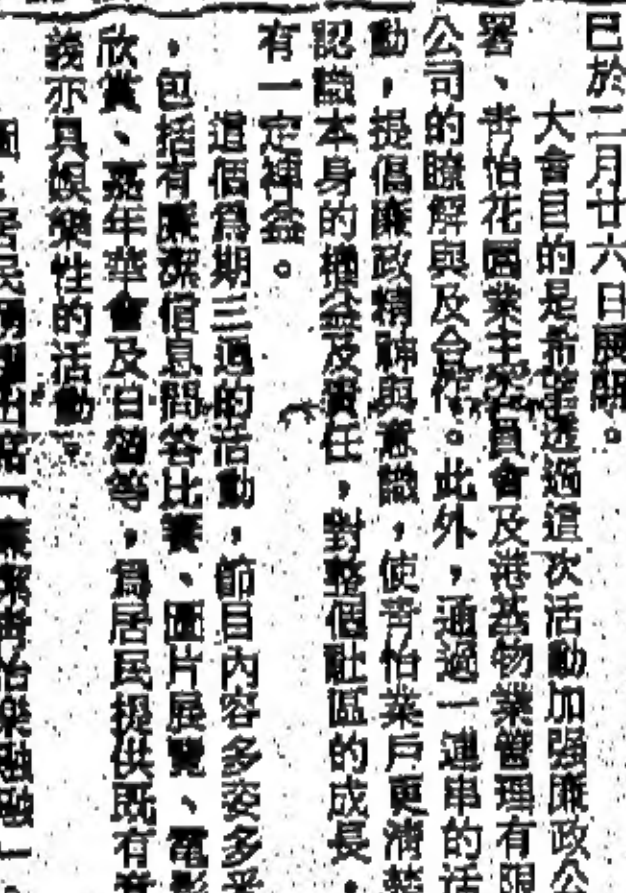 已於二月廿六日展開。
大會目的是希望透過這次活動加強廉政公
署、青怡花園業主委員會及港基物業管理有限
公司的瞭解與及合作。此外,通過一連串的活
動,提倡廉政精神與意識,使青怡業戶更清楚
認識本身的權益及責任,對整個社區的成長,
有一定裨益。
這個為期三週的活動,節目內容多姿多采
,包括有廉潔信息問答比賽、圖片展覽、電影
欣賞、嘉年華會及自備等,為居民提供既有意
義亦具娛樂性的活動。
居民踴躍出席「廉潔青怡樂融融」